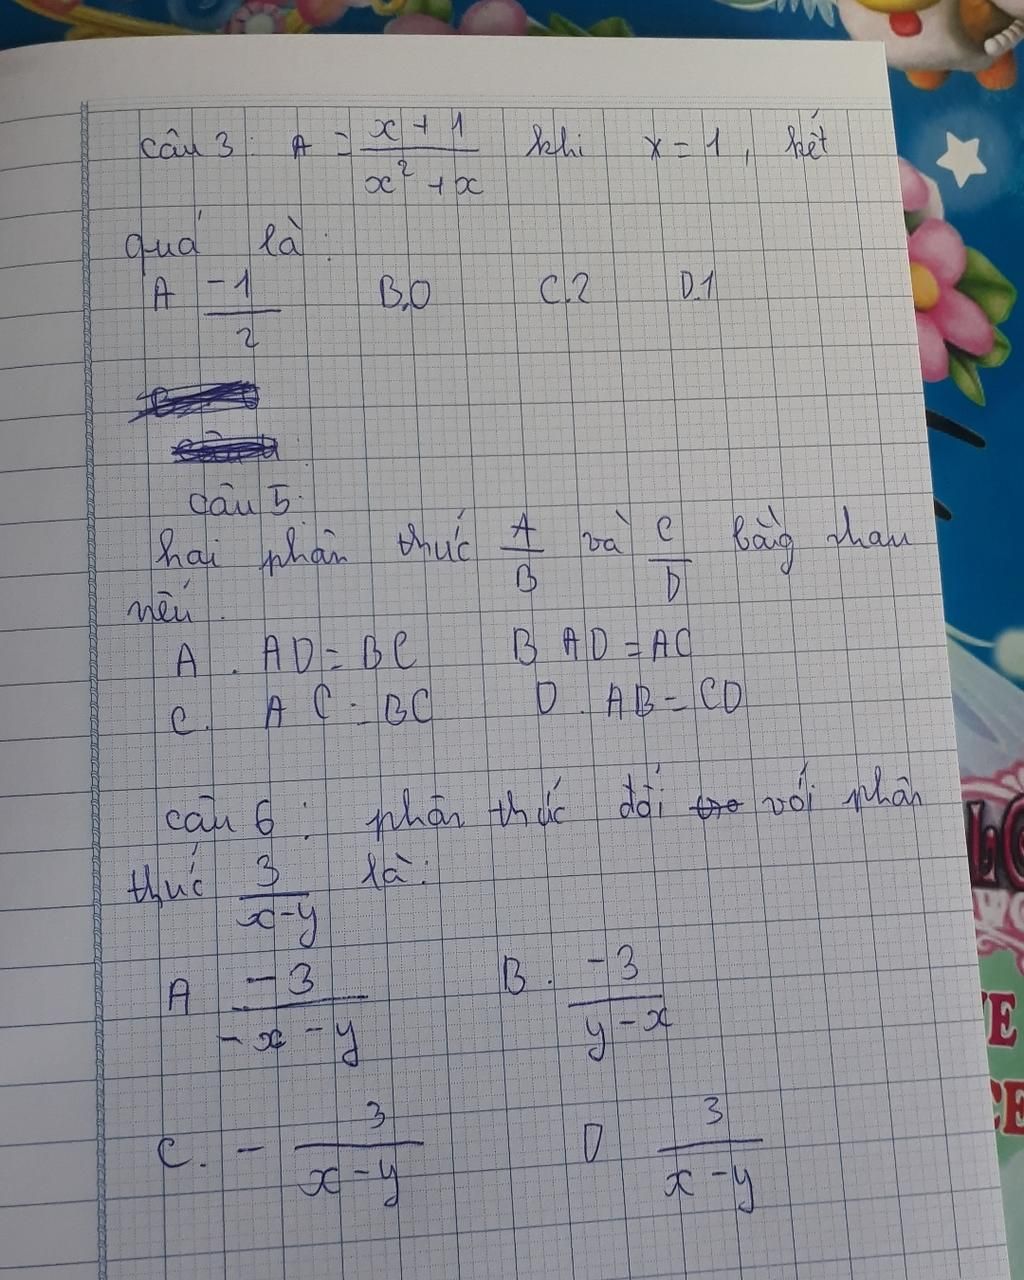 câu 3: A = \frac{x+1}{x^2+x} khi x = 1, kết
quả là:
A \frac{-1}{2} B,0 C.2 D.1
câu 5:
hai phân thức \frac{A}{B} và \frac{C}{D} bằg nhau
nếu.
A. AD = BC B AD = AC
C. AC = BC D. AB = CD
câu 6: phân thức đối với phân
thức \frac{3}{x-y} là:
A \frac{-3}{-x-y} B. \frac{-3}{y-x}
C. - \frac{3}{x-y} D \frac{3}{x-y}